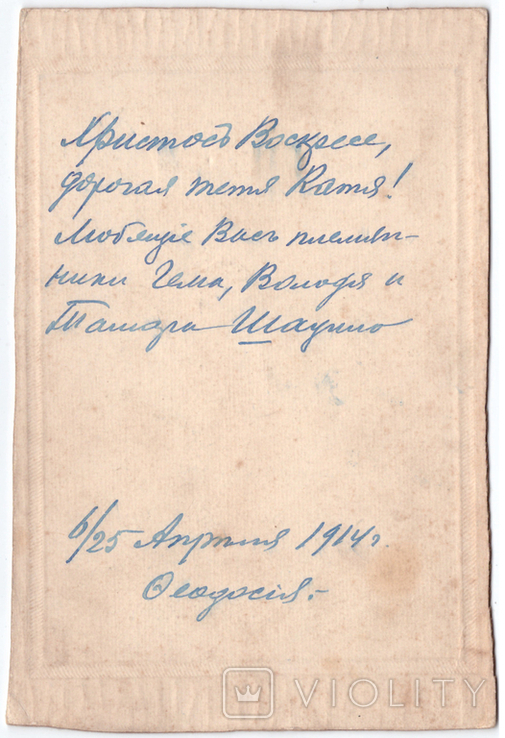 Христосъ Воскресе,
дорогая тетя Катя!
Любящіе Васъ племян-
ники Гема, Володя и
Тамара Шаурло
6/25 Апрѣля 1914 г.
Ѳеодосія.-
VIOLITY